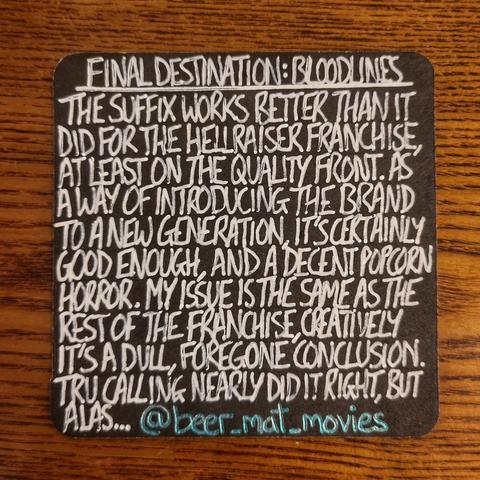 FINAL DESTINATION: BLOODLINES
THE SUFFIX WORKS BETTER THAN IT
DID FOR THE HELLRAISER FRANCHISE,
AT LEAST ON THE QUALITY FRONT. AS
A WAY OF INTRODUCING THE BRAND
TO A NEW GENERATION, IT'S CERTAINLY
GOOD ENOUGH, AND A DECENT POPCORN
HORROR. MY ISSUE IS THE SAME AS THE
REST OF THE FRANCHISE, CREATIVELY
IT'S A DULL, FOREGONE CONCLUSION.
TRU CALLING NEARLY DID IT RIGHT, BUT
ALAS... @beer_mat_movies